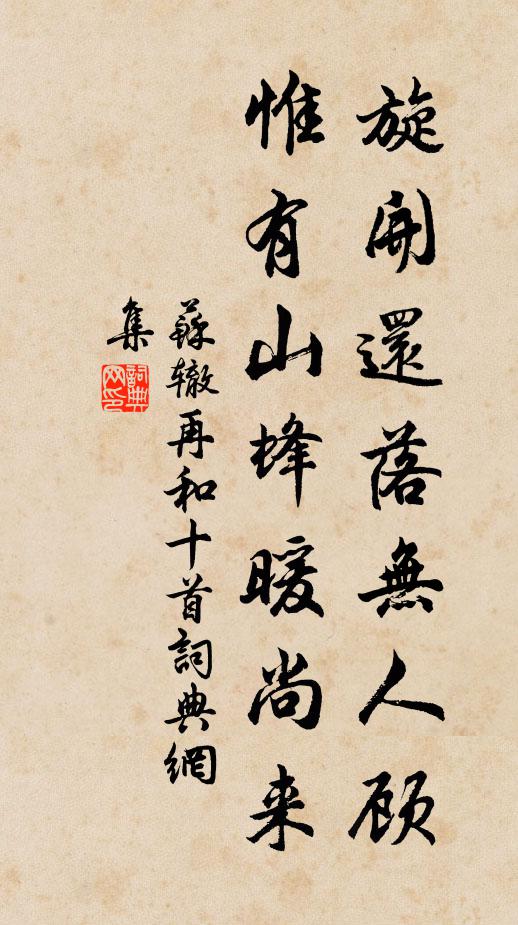 旋開還落無人顾
惟有山蜂暖尚来
蘇辙再和十首詞典網
集
詞典網印